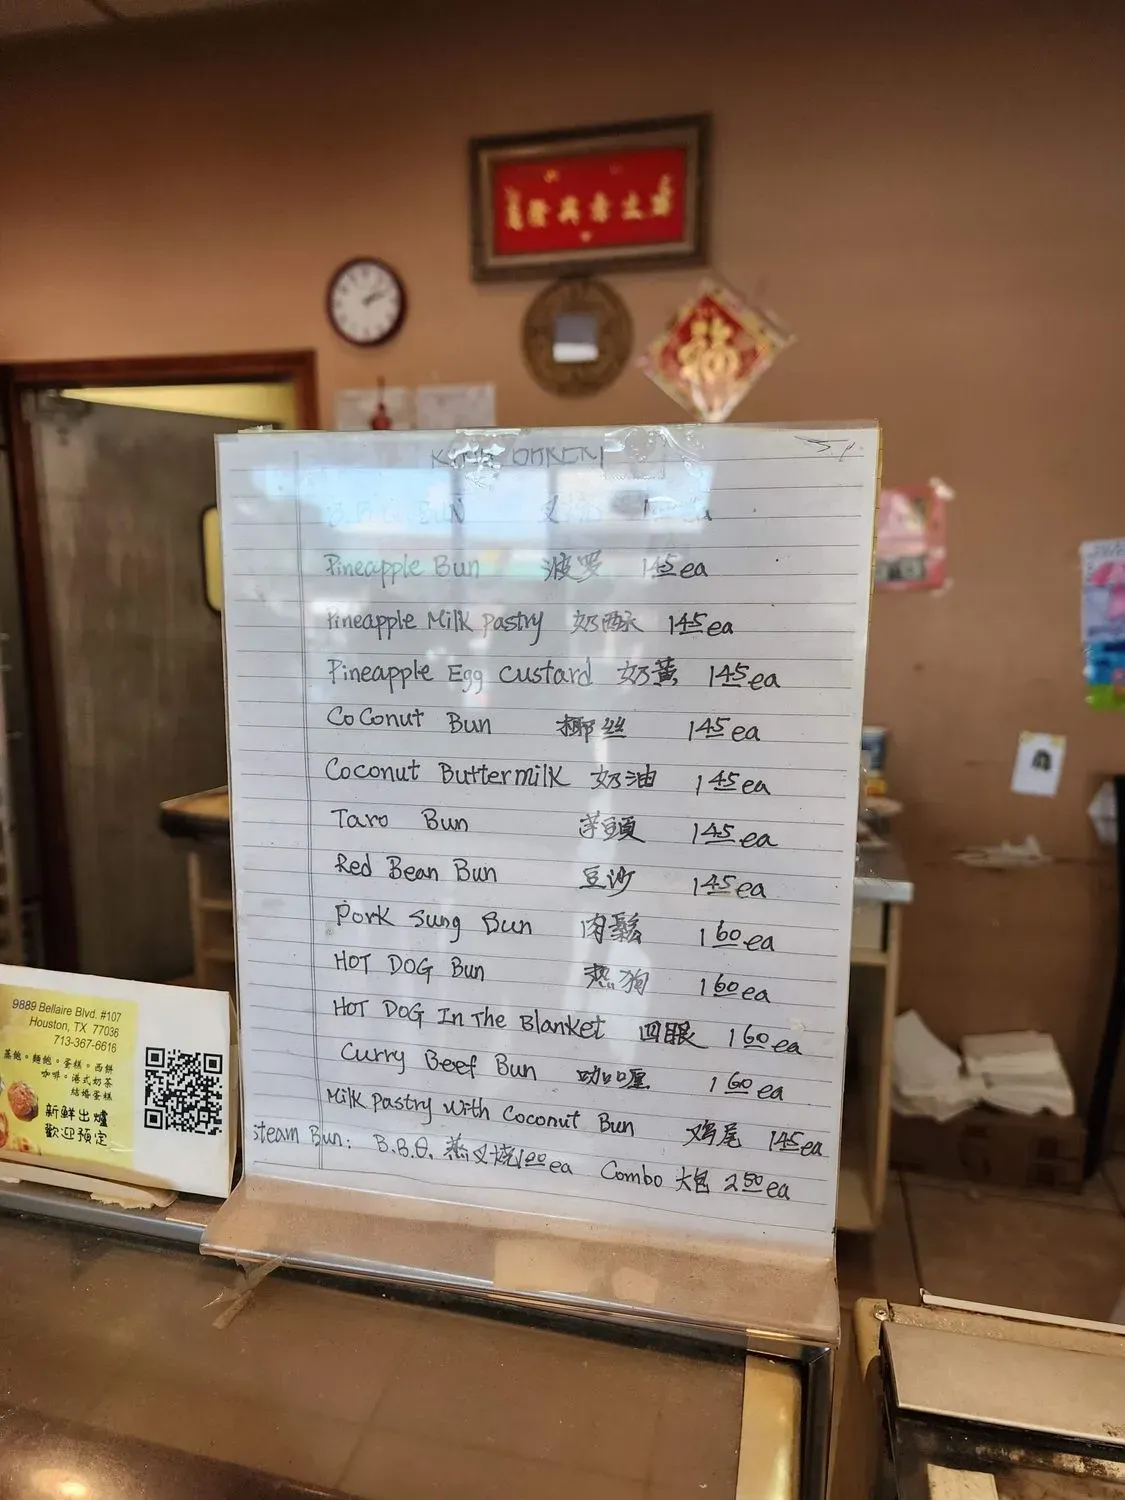 福
KING BAKERY
B.B.Q BUN 叉燒
Pineapple Bun 波罗 1.45 ea
Pineapple Milk Pastry 奶酥 1.45 ea
Pineapple Egg Custard 奶黃 1.45 ea
CoConut Bun 椰丝 1.45 ea
Coconut Buttermilk 奶油 1.45 ea
Taro Bun 芋頭 1.45 ea
Red Bean Bun 豆沙 1.45 ea
Pork Sung Bun 肉鬆 1.60 ea
HOT DOG Bun 热狗 1.60 ea
HOT DOG In The Blanket 四眼 1.60 ea
Curry Beef Bun 咖喱 1.60 ea
Milk Pastry with Coconut Bun 鸡尾 1.45 ea
Steam Bun: B.B.Q. 蒸叉烧 1.00 ea Combo 大包 2.50 ea
9889 Bellaire Blvd. #107
Houston, TX 77036
713-367-6616
蒸飽。麵飽。蛋糕。西餅
咖啡。港式奶茶
結婚蛋糕
新鮮出爐
歡迎預定